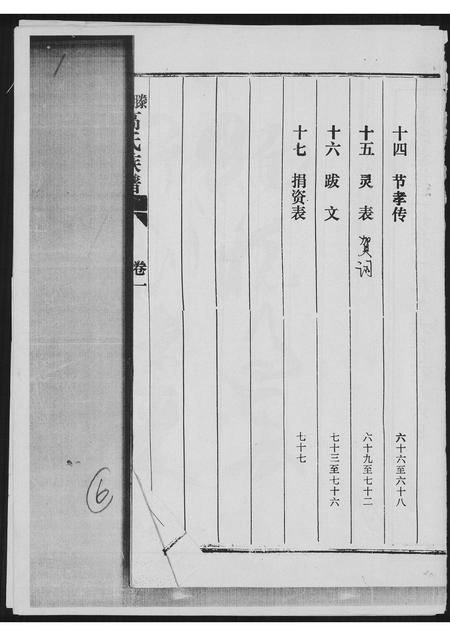 十四 节孝传 六十六至六十八
十五 灵表 贺词 六十九至七十二
十六 跋文 七十三至七十六
十七 捐资表 七十七
滕高氏族谱
卷一
6